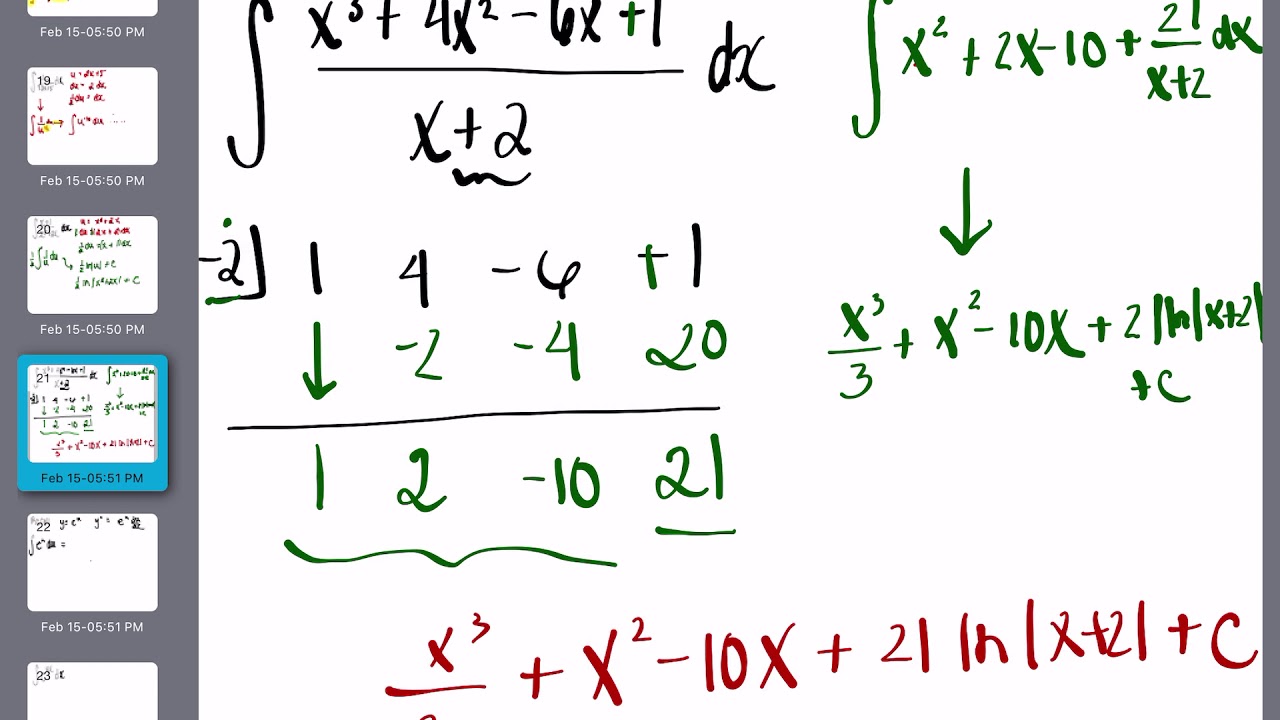 Feb 15-05:50 PM
19
Feb 15-05:50 PM
20
Feb 15-05:50 PM
21
Feb 15-05:51 PM
22
Feb 15-05:51 PM
23
∫ x³ + 4x² - 6x + 1 dx
x + 2
-2] 1 4 -6 +1
↓ -2 -4 20
1 2 -10 21
∫ x² + 2x - 10 + 21/x+2 dx
↓
x³/3 + x² - 10x + 21 ln|x+2|
+ C
x³ + x² - 10x + 21 ln|x+2| + C